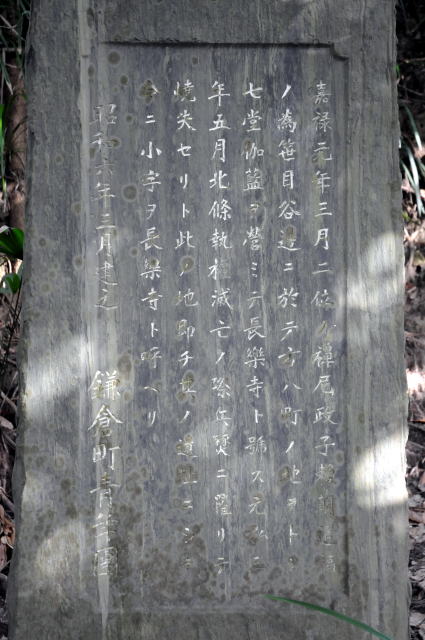 嘉禄元年三月二位ノ禅尼政子頼朝追福
ノ為笹目谷辺ニ於テ方八町ノ地ヲトシ
七堂伽藍ヲ営ミテ長樂寺ト號ス元弘三
年五月北條執権滅亡ノ際兵燹ニ罹リテ
焼失セリト此ノ地即チ其ノ遺址ニシテ
今ニ小字ヲ長樂寺ト呼ヘリ
昭和六年三月建之 鎌倉町青年團